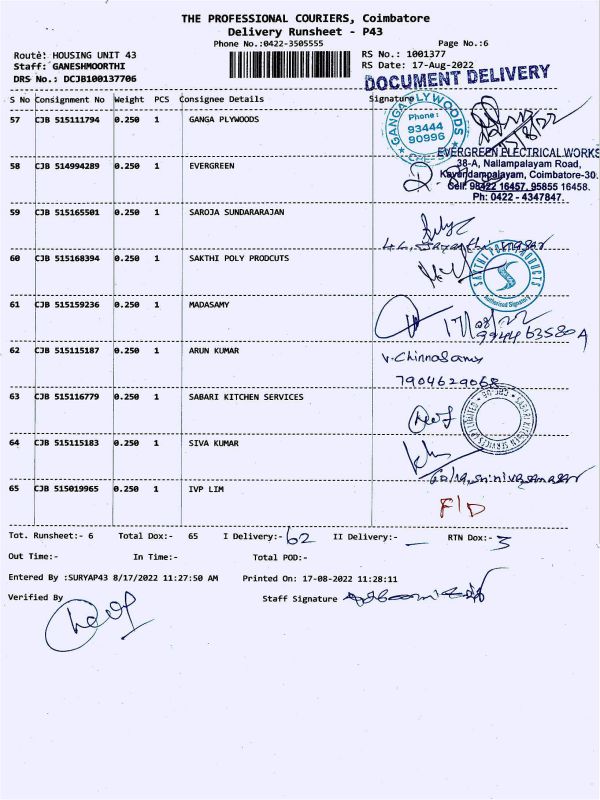 THE PROFESSIONAL COURIERS, Coimbatore
Delivery Runsheet - P43
Phone No.:0422-3505555 Page No.:6
Route: HOUSING UNIT 43 RS No.: 1001377
Staff: GANESHMOORTHI RS Date: 17-Aug-2022
DRS No.: DCJB100137706 DOCUMENT DELIVERY
S No Consignment No Weight PCS Consignee Details Signature
57 CJB 515111794 0.250 1 GANGA PLYWOODS
GANGA PLYWOODS
Phone:
93444
90996
58 CJB 514994289 0.250 1 EVERGREEN
EVERGREEN ELECTRICAL WORKS
38-A, Nallampalayam Road,
Kavundampalayam, Coimbatore-30.
Cell: 98422 16457, 95855 16458.
Ph: 0422 - 4347847.
59 CJB 515165501 0.250 1 SAROJA SUNDARARAJAN
60 CJB 515168394 0.250 1 SAKTHI POLY PRODCUTS
SAKTHI POLY PRODUCTS
Authorised Signatory
61 CJB 515159236 0.250 1 MADASAMY
17/08/22
9944463580
62 CJB 515115187 0.250 1 ARUN KUMAR
V. Chinnasamy
7904629068
63 CJB 515116779 0.250 1 SABARI KITCHEN SERVICES
SABARI KITCHEN SERVICES P LIMITED
64 CJB 515115183 0.250 1 SIVA KUMAR
65 CJB 515019965 0.250 1 IVP LIM
F/D
Tot. Runsheet:- 6 Total Dox:- 65 I Delivery:- 62 II Delivery:- — RTN Dox:- 3
Out Time:- In Time:- Total POD:-
Entered By :SURYAP43 8/17/2022 11:27:50 AM Printed On: 17-08-2022 11:28:11
Verified By Staff Signature